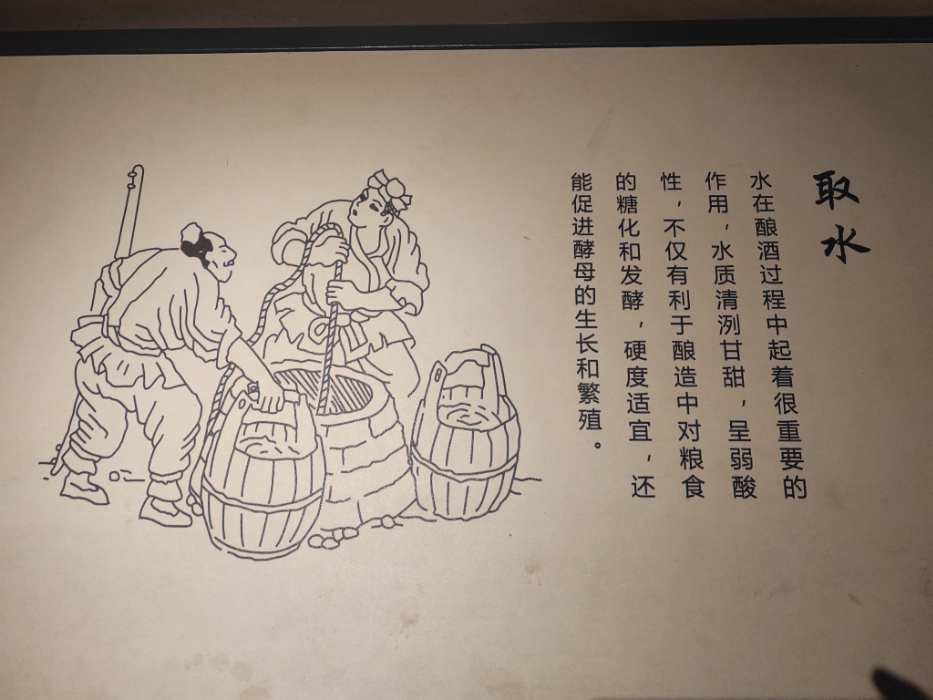 取水
水在酿酒过程中起着很重要的
作用，水质清洌甘甜，呈弱酸
性，不仅有利于酿造中对粮食
的糖化和发酵，硬度适宜，还
能促进酵母的生长和繁殖。